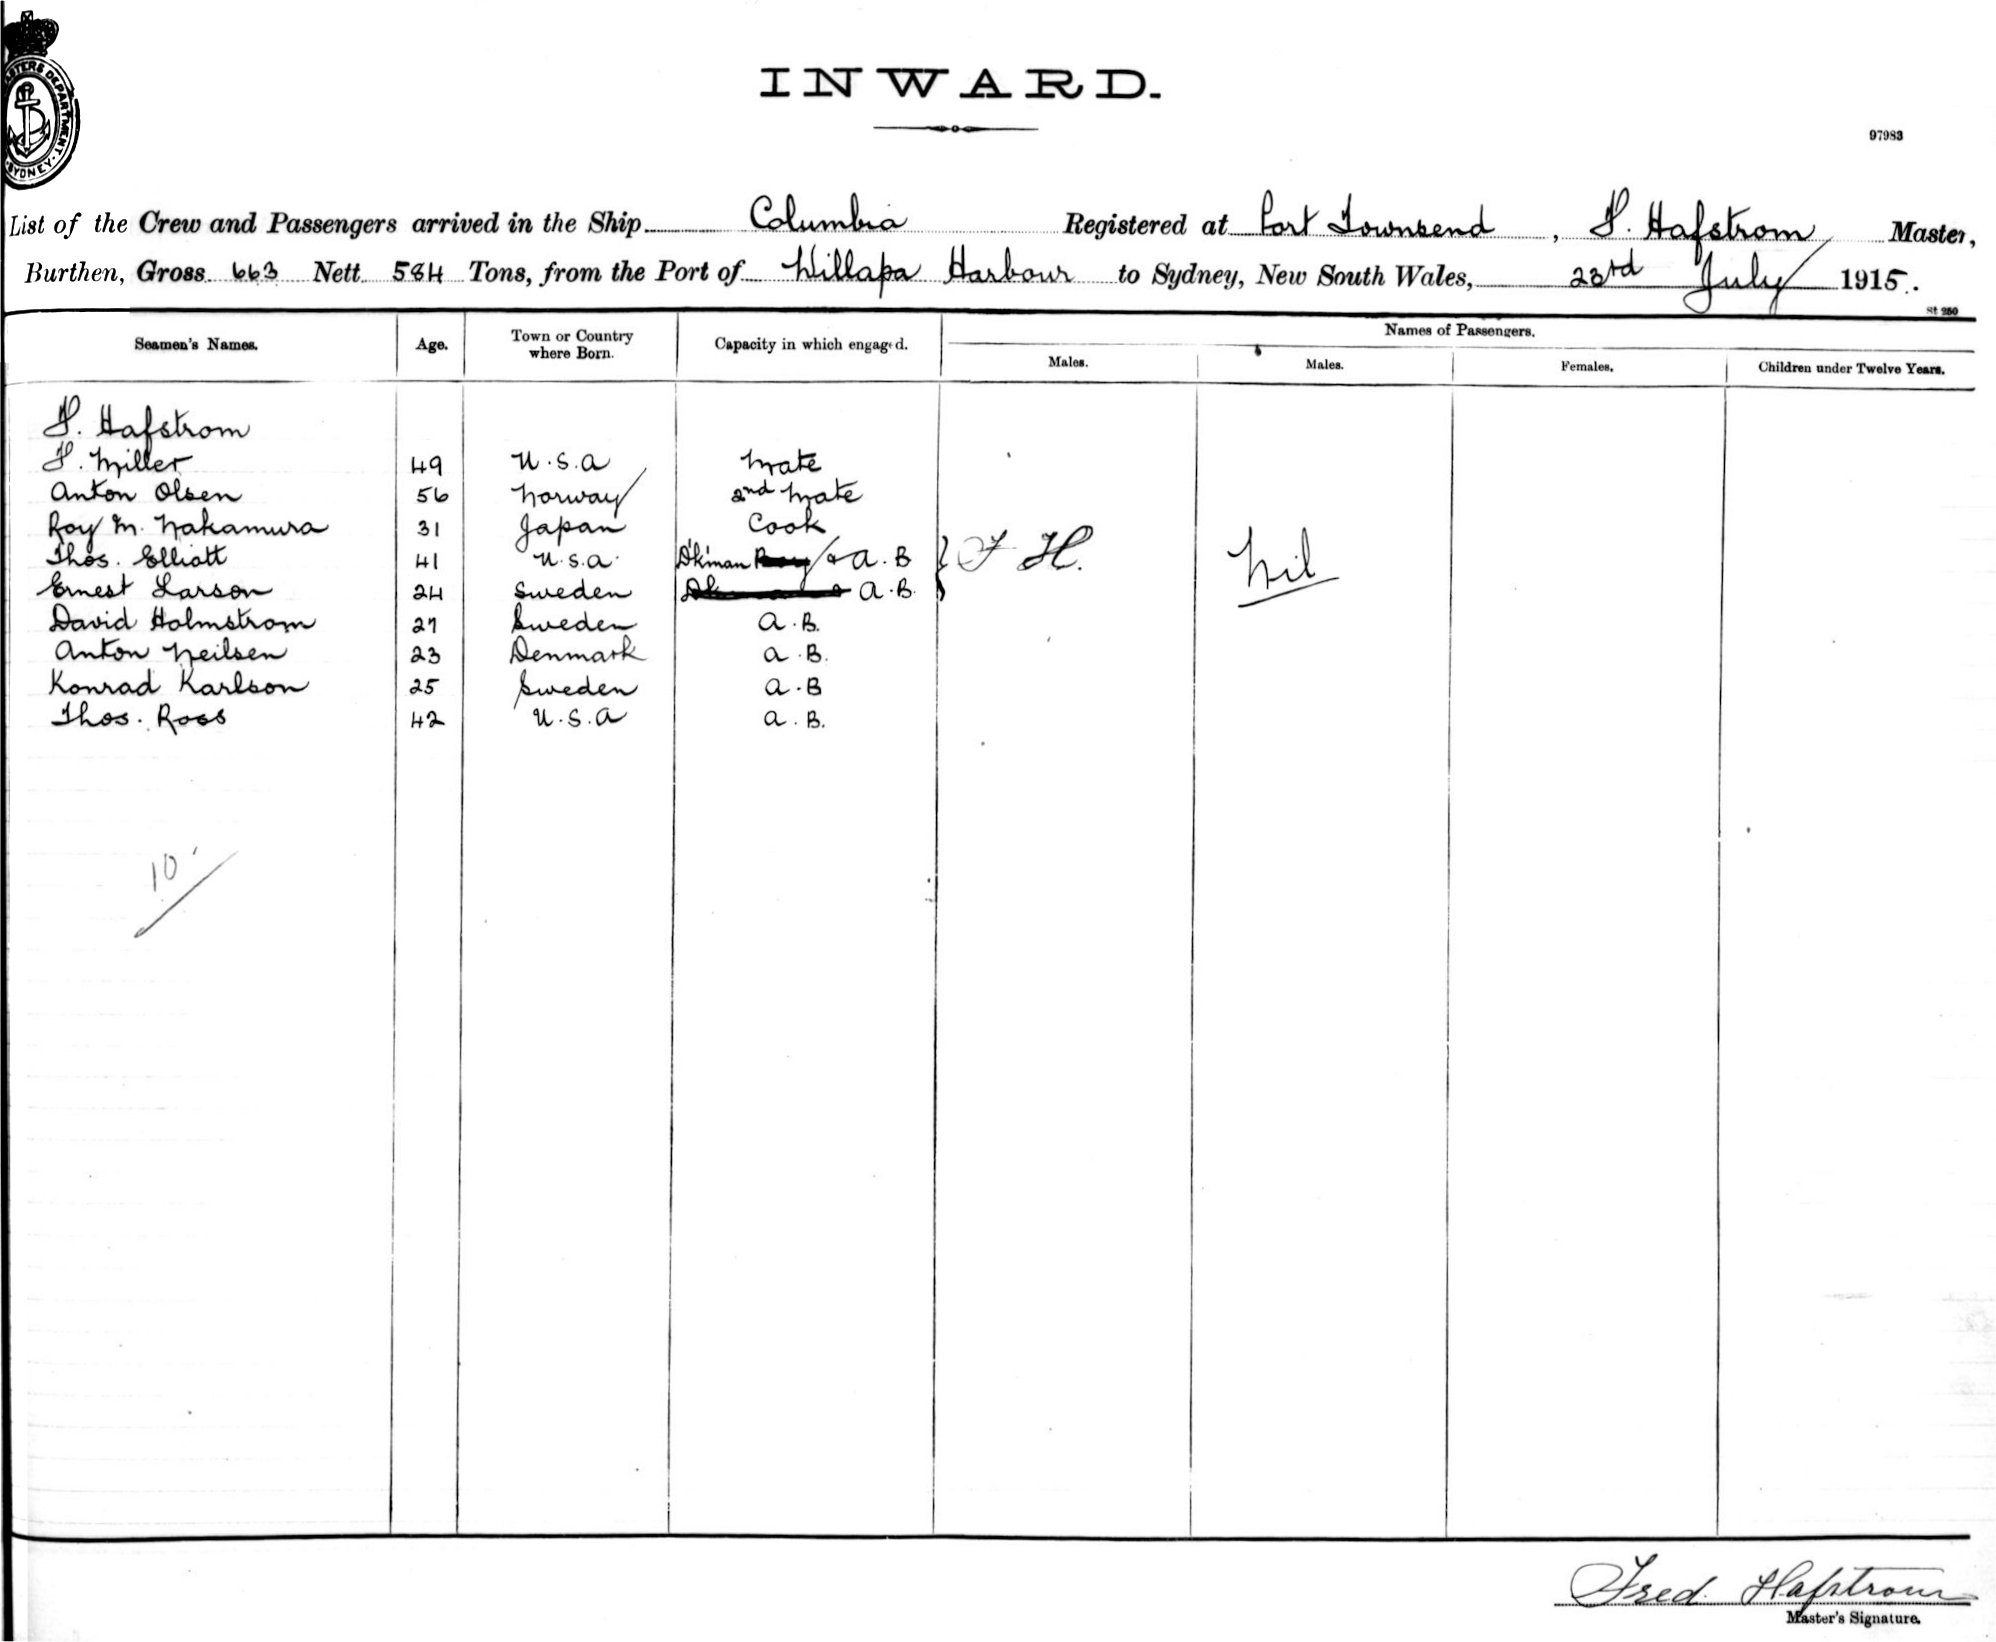 MASTERS DEPARTMENT
SYDNEY
INWARD.
97983
List of the Crew and Passengers arrived in the Ship Columbia Registered at Port Townsend, F. Hafstrom Master,
Burthen, Gross 663 Nett 584 Tons, from the Port of Willapa Harbour to Sydney, New South Wales, 23rd July 1915.
St 250
Seamen's Names. Age. Town or Country where Born. Capacity in which engaged. Names of Passengers.
Males. Males. Females. Children under Twelve Years.
F. Hafstrom
F. Miller 49 U.S.A Mate
Anton Olsen 56 Norway 2nd Mate
Roy M. Nakamura 31 Japan Cook
Thos. Elliott 41 U.S.A. D'k'man & A.B } F H. Nil
Ernest Larson 24 Sweden A.B.
David Holmstrom 27 Sweden A.B.
Anton Neilsen 23 Denmark A.B.
Konrad Karlson 25 Sweden A.B
Thos. Ross 42 U.S.A A.B.
10
Fred Hafstrom
Master's Signature.